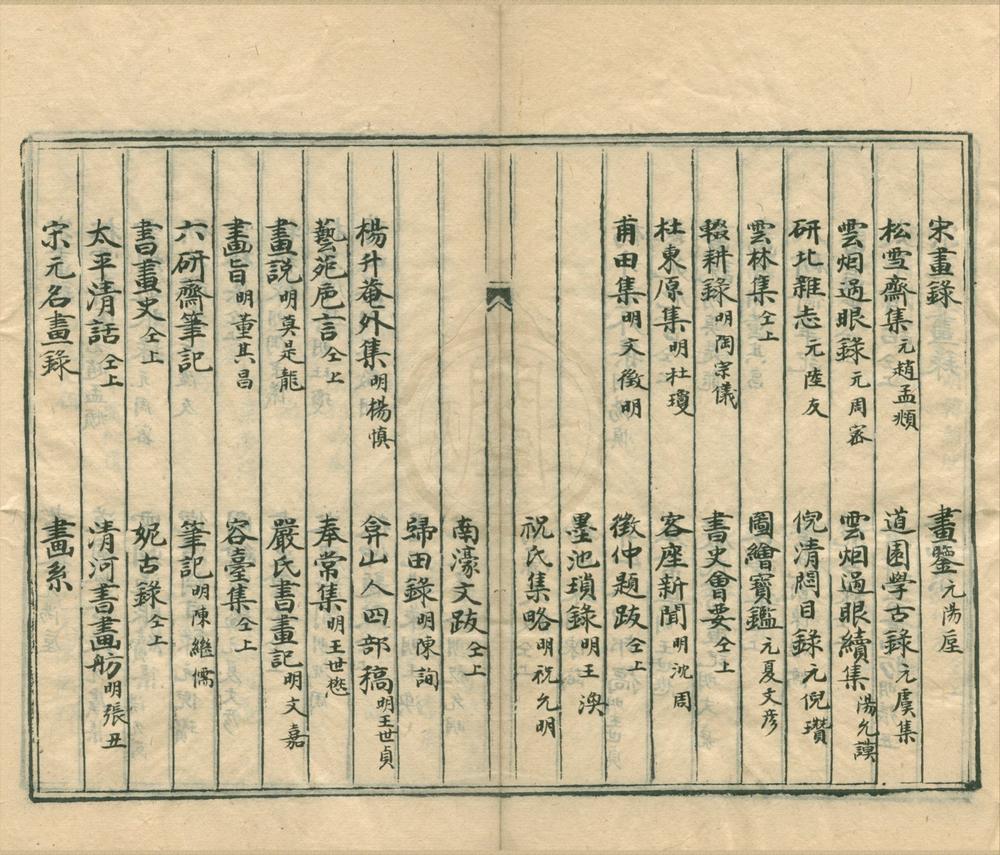 宋畫錄　畫鑒元湯垕
松雪齋集元趙孟頫　道園學古錄元虞集
雲烟過眼錄元周密　雲烟過眼續集湯允謨
研北雜志元陸友　倪清閟目錄元倪瓚
雲林集仝上　圖繪寶鑑元夏文彦
輟耕錄明陶宗儀　書史會要仝上
杜東原集明杜瓊　客座新聞明沈周
甫田集明文徵明　徵仲題跋仝上
墨池瑣錄明王澳
祝氏集略明祝允明
南濠文跋仝上
歸田錄明陳詢
楊升菴外集明楊慎　弇山人四部稿明王世貞
藝苑巵言仝上　奉常集明王世懋
畫説明莫是龍　嚴氏書畫記明文嘉
畫旨明董其昌　容臺集仝上
六研齋筆記　筆記明陳繼儒
書畫史仝上　妮古錄仝上
太平清話仝上　清河書畫舫明張丑
宋元名畫錄　畫系